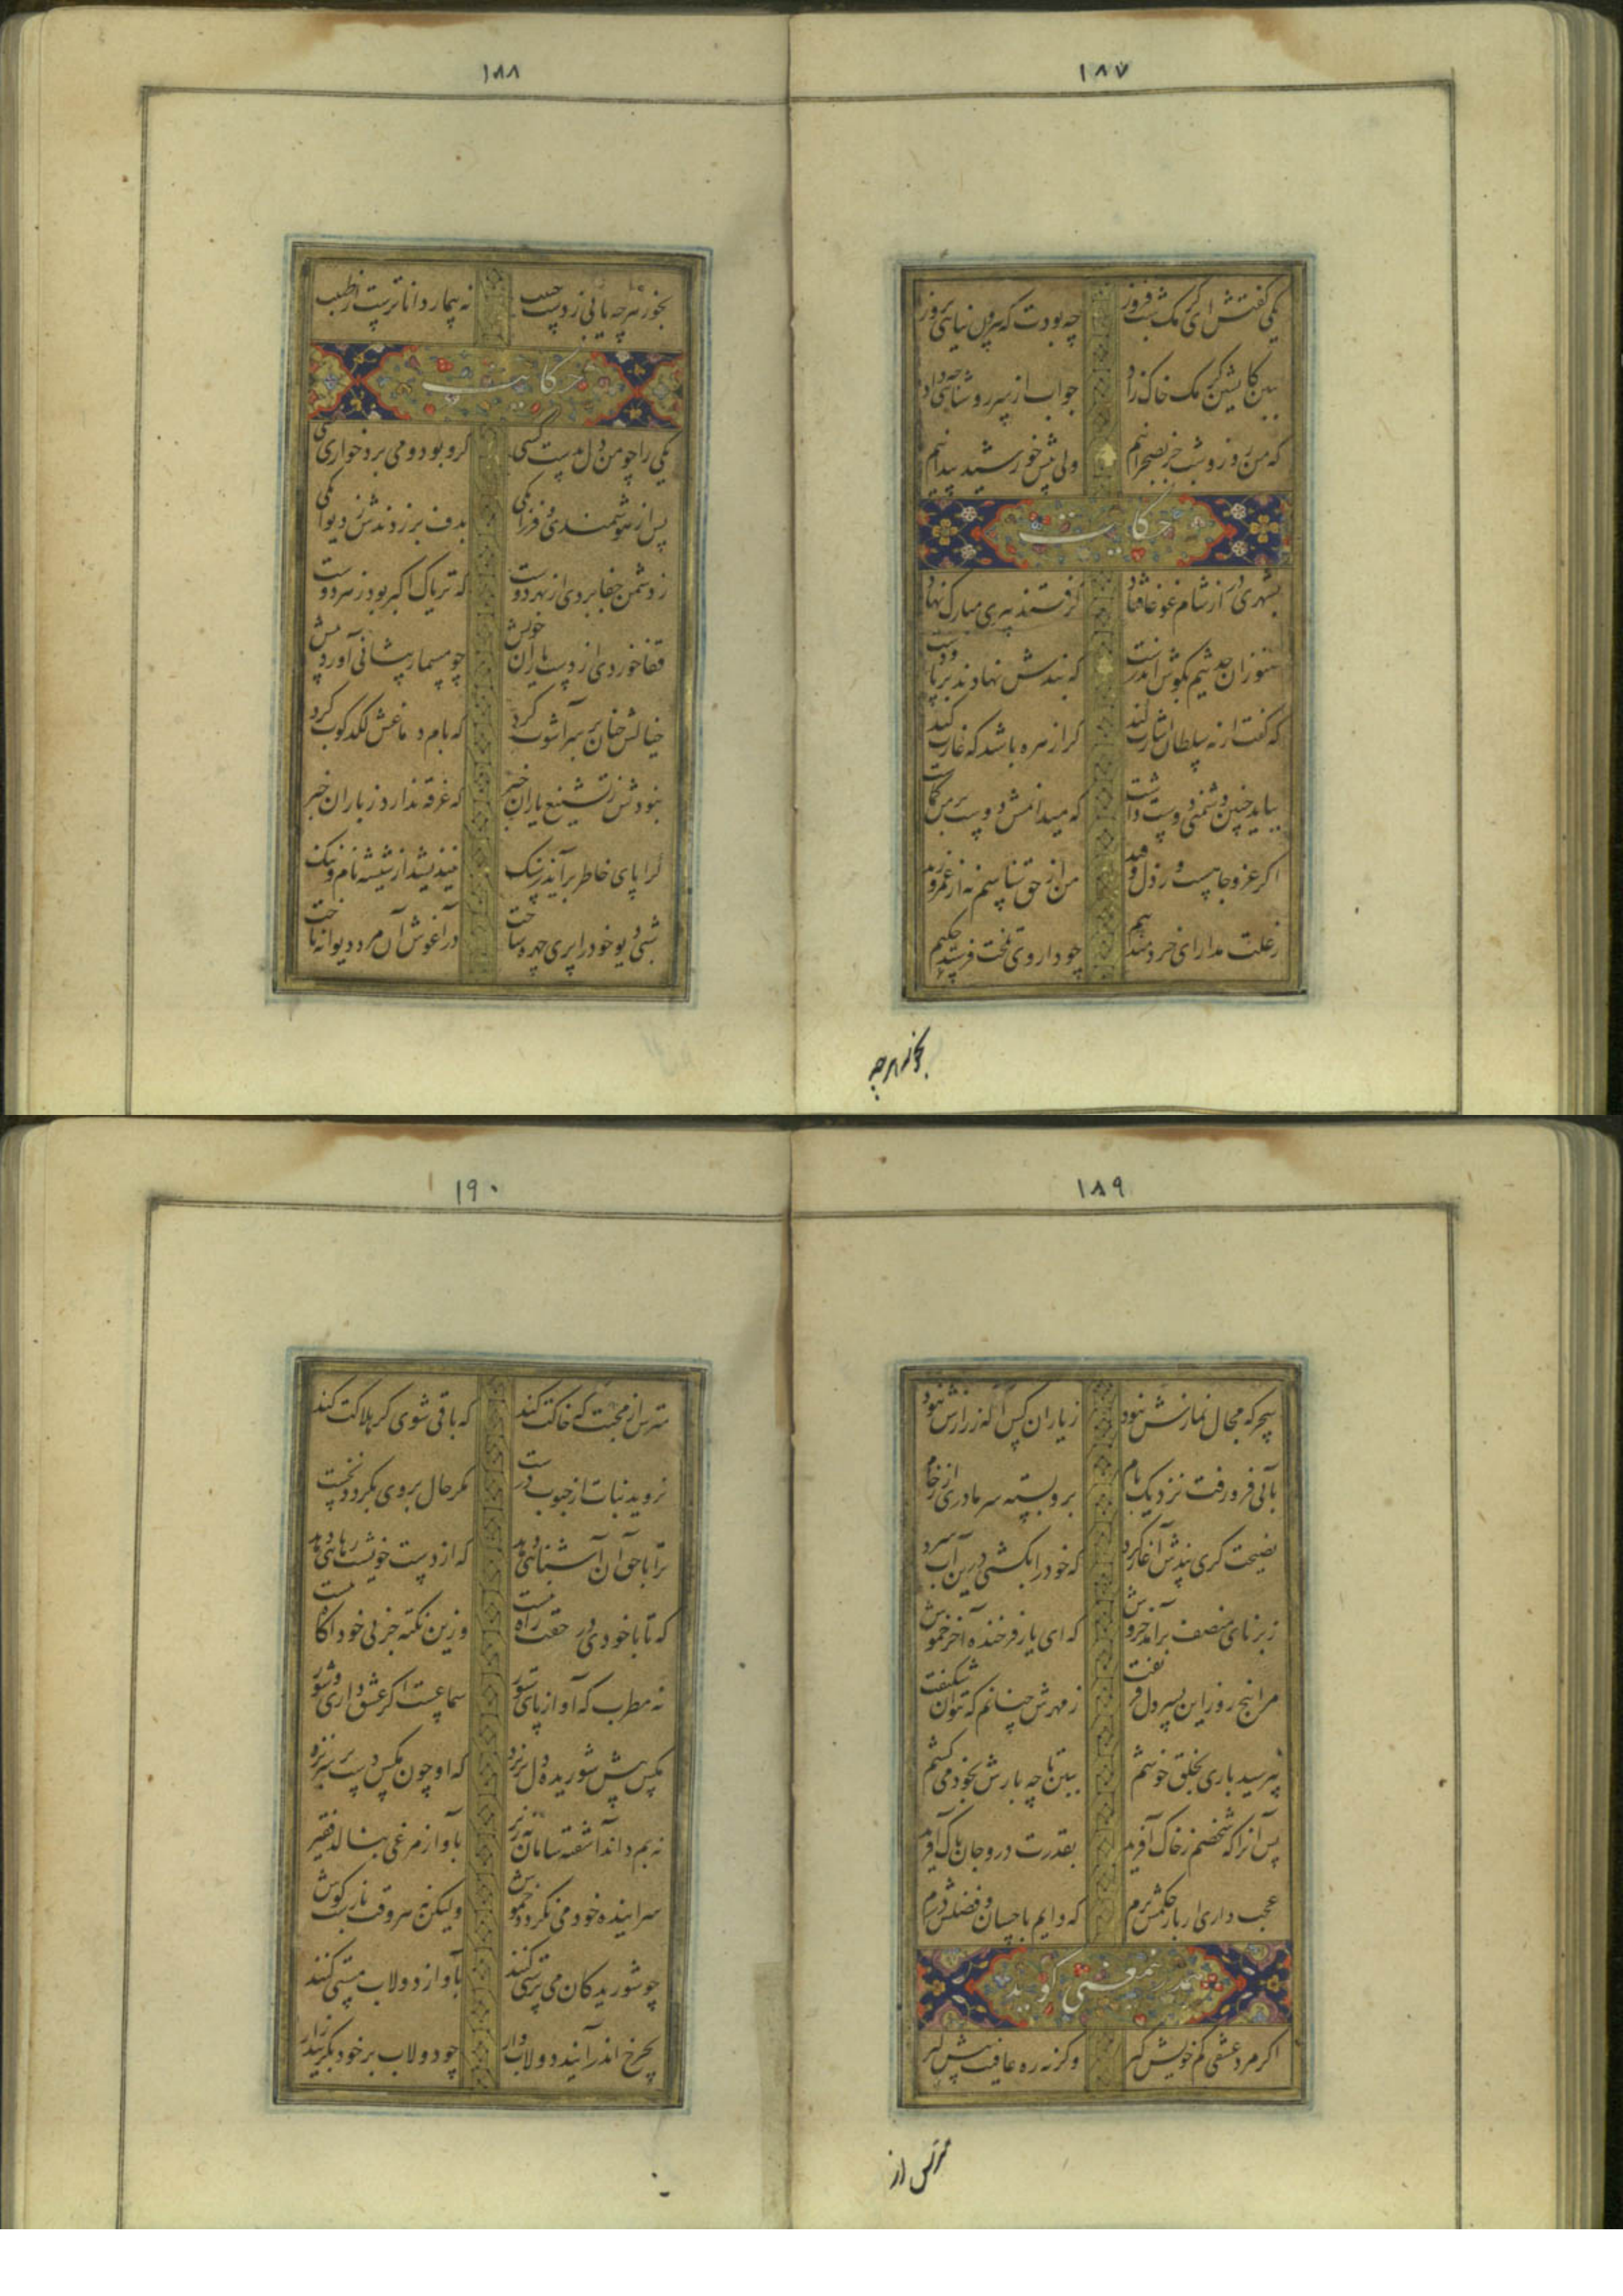 ۱۸۷
یکی گفتش ای کرمک شب فروز چه بودت که بیرون نیایی بروز
ببین کاتشین کرمک خاک زاد جواب از سر روشنایی چه داد
که من روز و شب جز بصحرا نیم ولی پیش خورشید پیدا نیم
حکایت
بشهری در از شام غوغا فتاد گرفتند پیری مبارک نهاد
هنوز آن حدیثم بگوش اندرست که بندش نهادند بر پا و دست
که گفت ار نه سلطان اشارت کند کرا زهره باشد که غارت کند
بباید چنین دشمنی دوست داشت که میدانمش دوست بر من گماشت
اگر عز و جاهست و ر ذل و قید من از حق شناسم نه از عمرو و زید
ز علت مدار ای خردمند بیم چو داروی تلخت فرستد حکیم
بخور هرچه
۱۸۸
بخور هرچه یابی ز دست حبیب نه بیمار داناترست از طبیب
حکایت
یکی را چو من دل بدست کسی گرو بود و می برد خواری بسی
پس از هوشمندی و فرزانگی بدف بر زدندش ز دیوانگی
ز دشمن جفا بردی از بهر دوست که تریاک اکبر بود زهر دوست
قفا خوردی از دست یاران خویش چو مسمار پیشانی آورد پیش
خیالش چنان بر سر آشوب کرد که بام دماغش لگدکوب کرد
نبودش ز تشنیع یاران خبر که غرقه ندارد ز باران خبر
کرا پای خاطر برآید بسنگ نیندیشد از شیشه نام و ننگ
شبی دیو خود را پری چهره ساخت در آغوش آن مرد دیوانه تاخت
۱۸۹
سحرگه مجال نمازش نبود ز یاران کس آگه ز رازش نبود
بآبی فرو رفت نزدیک بام برو بسته سرما دری از رخام
نصیحت گری پندش آغاز کرد که خود را بکشتی درین آب سرد
ز برنای منصف برآمد خروش که ای یار فرخنده آخر خموش
مرا پنج روز این پسر دل فریفت ز مهرش چنانم که نتوان شکیفت
نپرسید باری بخلق خوشم ببین تا چه بارش بخود می کشم
پس آنرا که شخصم ز خاک آفرید بقدرت درو جان پاک آفرید
عجب داری ار بار حکمش برم که دایم باحسان و فضلش درم
هم درین معنی گوید
اگر مرد عشقی کم خویش گیر وگرنه ره عافیت پیش گیر
مترس از
۱۹۰
مترس از محبت که خاکت کند که باقی شوی گر هلاکت کند
نروید نبات از حبوب درست مگر حال بر وی بگردد نخست
ترا با حق آن آشنایی دهد که از دست خویشت رهایی دهد
که تا با خودی در حقت راه نیست وزین نکته جز بی خود آگاه نیست
نه مطرب که آواز پای ستور سماعست اگر عشق داری و شور
مگس پیش شوریده دل نزد که او چون مگس دست بر سر نزد
نه بم داند آشفته سامان نه زیر بآواز مرغی بنالد فقیر
سراینده خود می نگردد خموش ولیکن نه هر وقت بازست گوش
چو شوریدگان می پرستی کنند بآواز دولاب مستی کنند
بچرخ اندر آیند دولاب وار چو دولاب بر خود بگریند زار